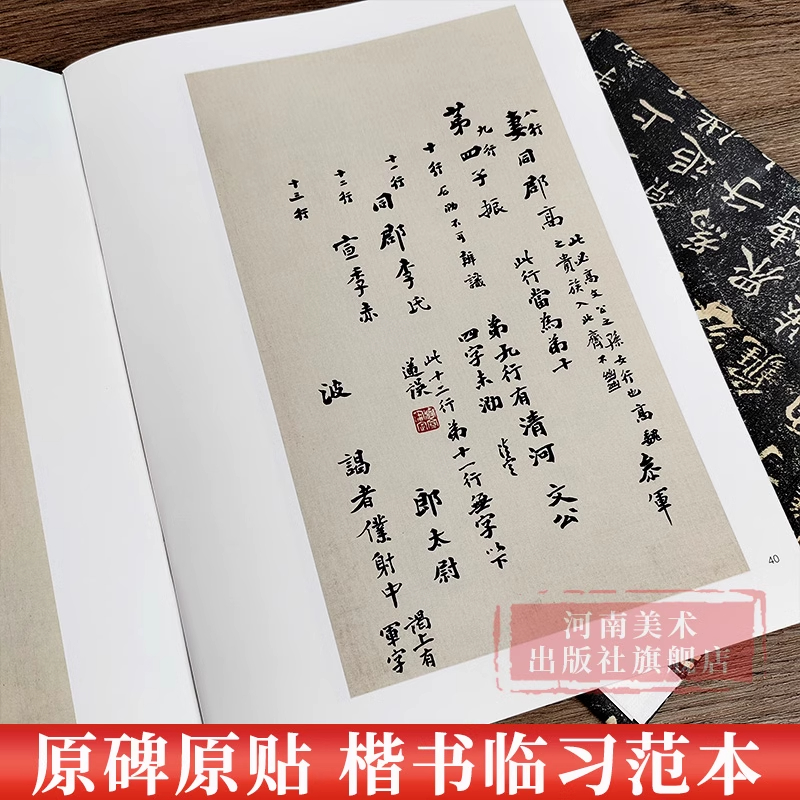 八行
妻同郡高
此必高文公之孫女行也高魏
之貴族入北齊不
叅軍
九行
第四子振
此行當為第十
文公
第九行有清河
四字未泐
十行石泐不可辨識
十一行
同郡李氏
郎太尉
此十二行第十一行無字以下
遂誤
十二行
宣季赤
謁者僕射中軍字
謁上有
十三行
波
40
河南美术
出版社旗舰店
原碑原贴 楷书临习范本